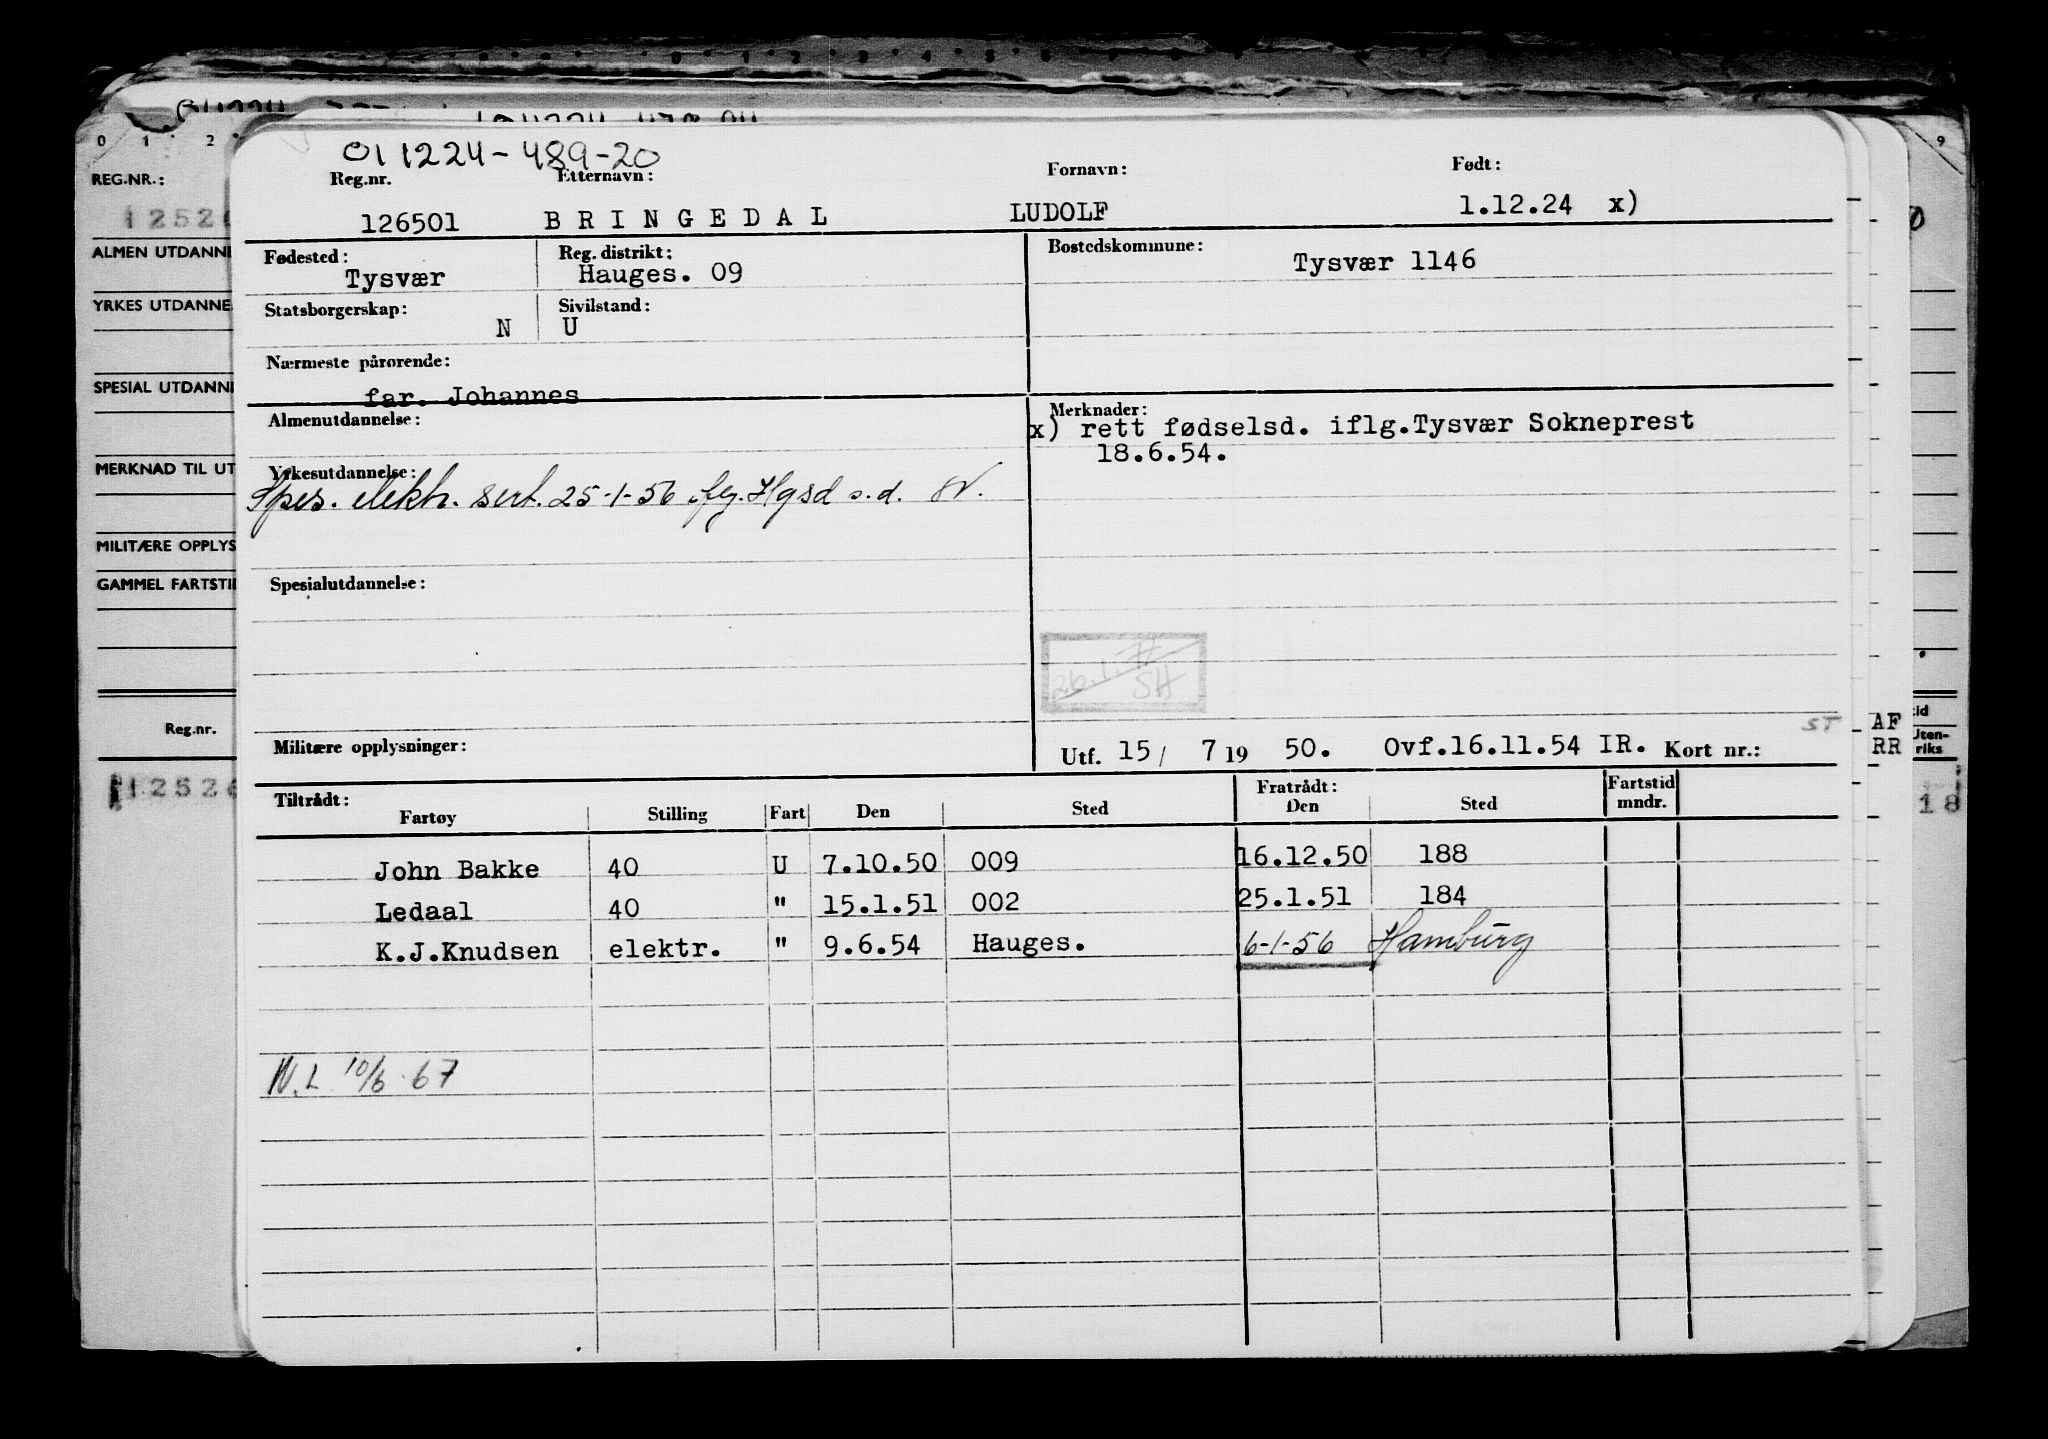 0 1 2 3 4 5 6
0 1 2
9
011224-489-20
Reg.nr. Etternavn: Fornavn: Født:
126501 BRINGEDAL LUDOLF 1.12.24 x)
Fødested: Tysvær Reg. distrikt: Hauges. 09 Bostedskommune: Tysvær 1146
Statsborgerskap: N Sivilstand: U
Nærmeste pårørende:
far. Johannes
Almenutdannelse: Merknader:
x) rett fødselsd. iflg.Tysvær Sokneprest
18.6.54.
Yrkesutdannelse:
Spes. elektr. sert. 25-1-56 Hgsd s.d.
Spesialutdannelse:
26.1.
SH
ST
Militære opplysninger: Utf. 15/ 7 19 50. Ovf.16.11.54 IR. Kort nr.:
Tiltrådt: Fratrådt: Fartstid
Fartøy Stilling Fart Den Sted Den Sted mndr.
John Bakke 40 U 7.10.50 009 16.12.50 188
Ledaal 40 " 15.1.51 002 25.1.51 184
K.J.Knudsen elektr. " 9.6.54 Hauges. 6-1-56 Hamburg
N.L. 10/6-67
REG.NR.:
1252
ALMEN UTDANNE
YRKES UTDANNE
SPESIAL UTDANN
MERKNAD TIL UT
MILITÆRE OPPLYS
GAMMEL FARTSTI
Reg.nr.
1252
AF
RR
tid
Uten-
riks
18